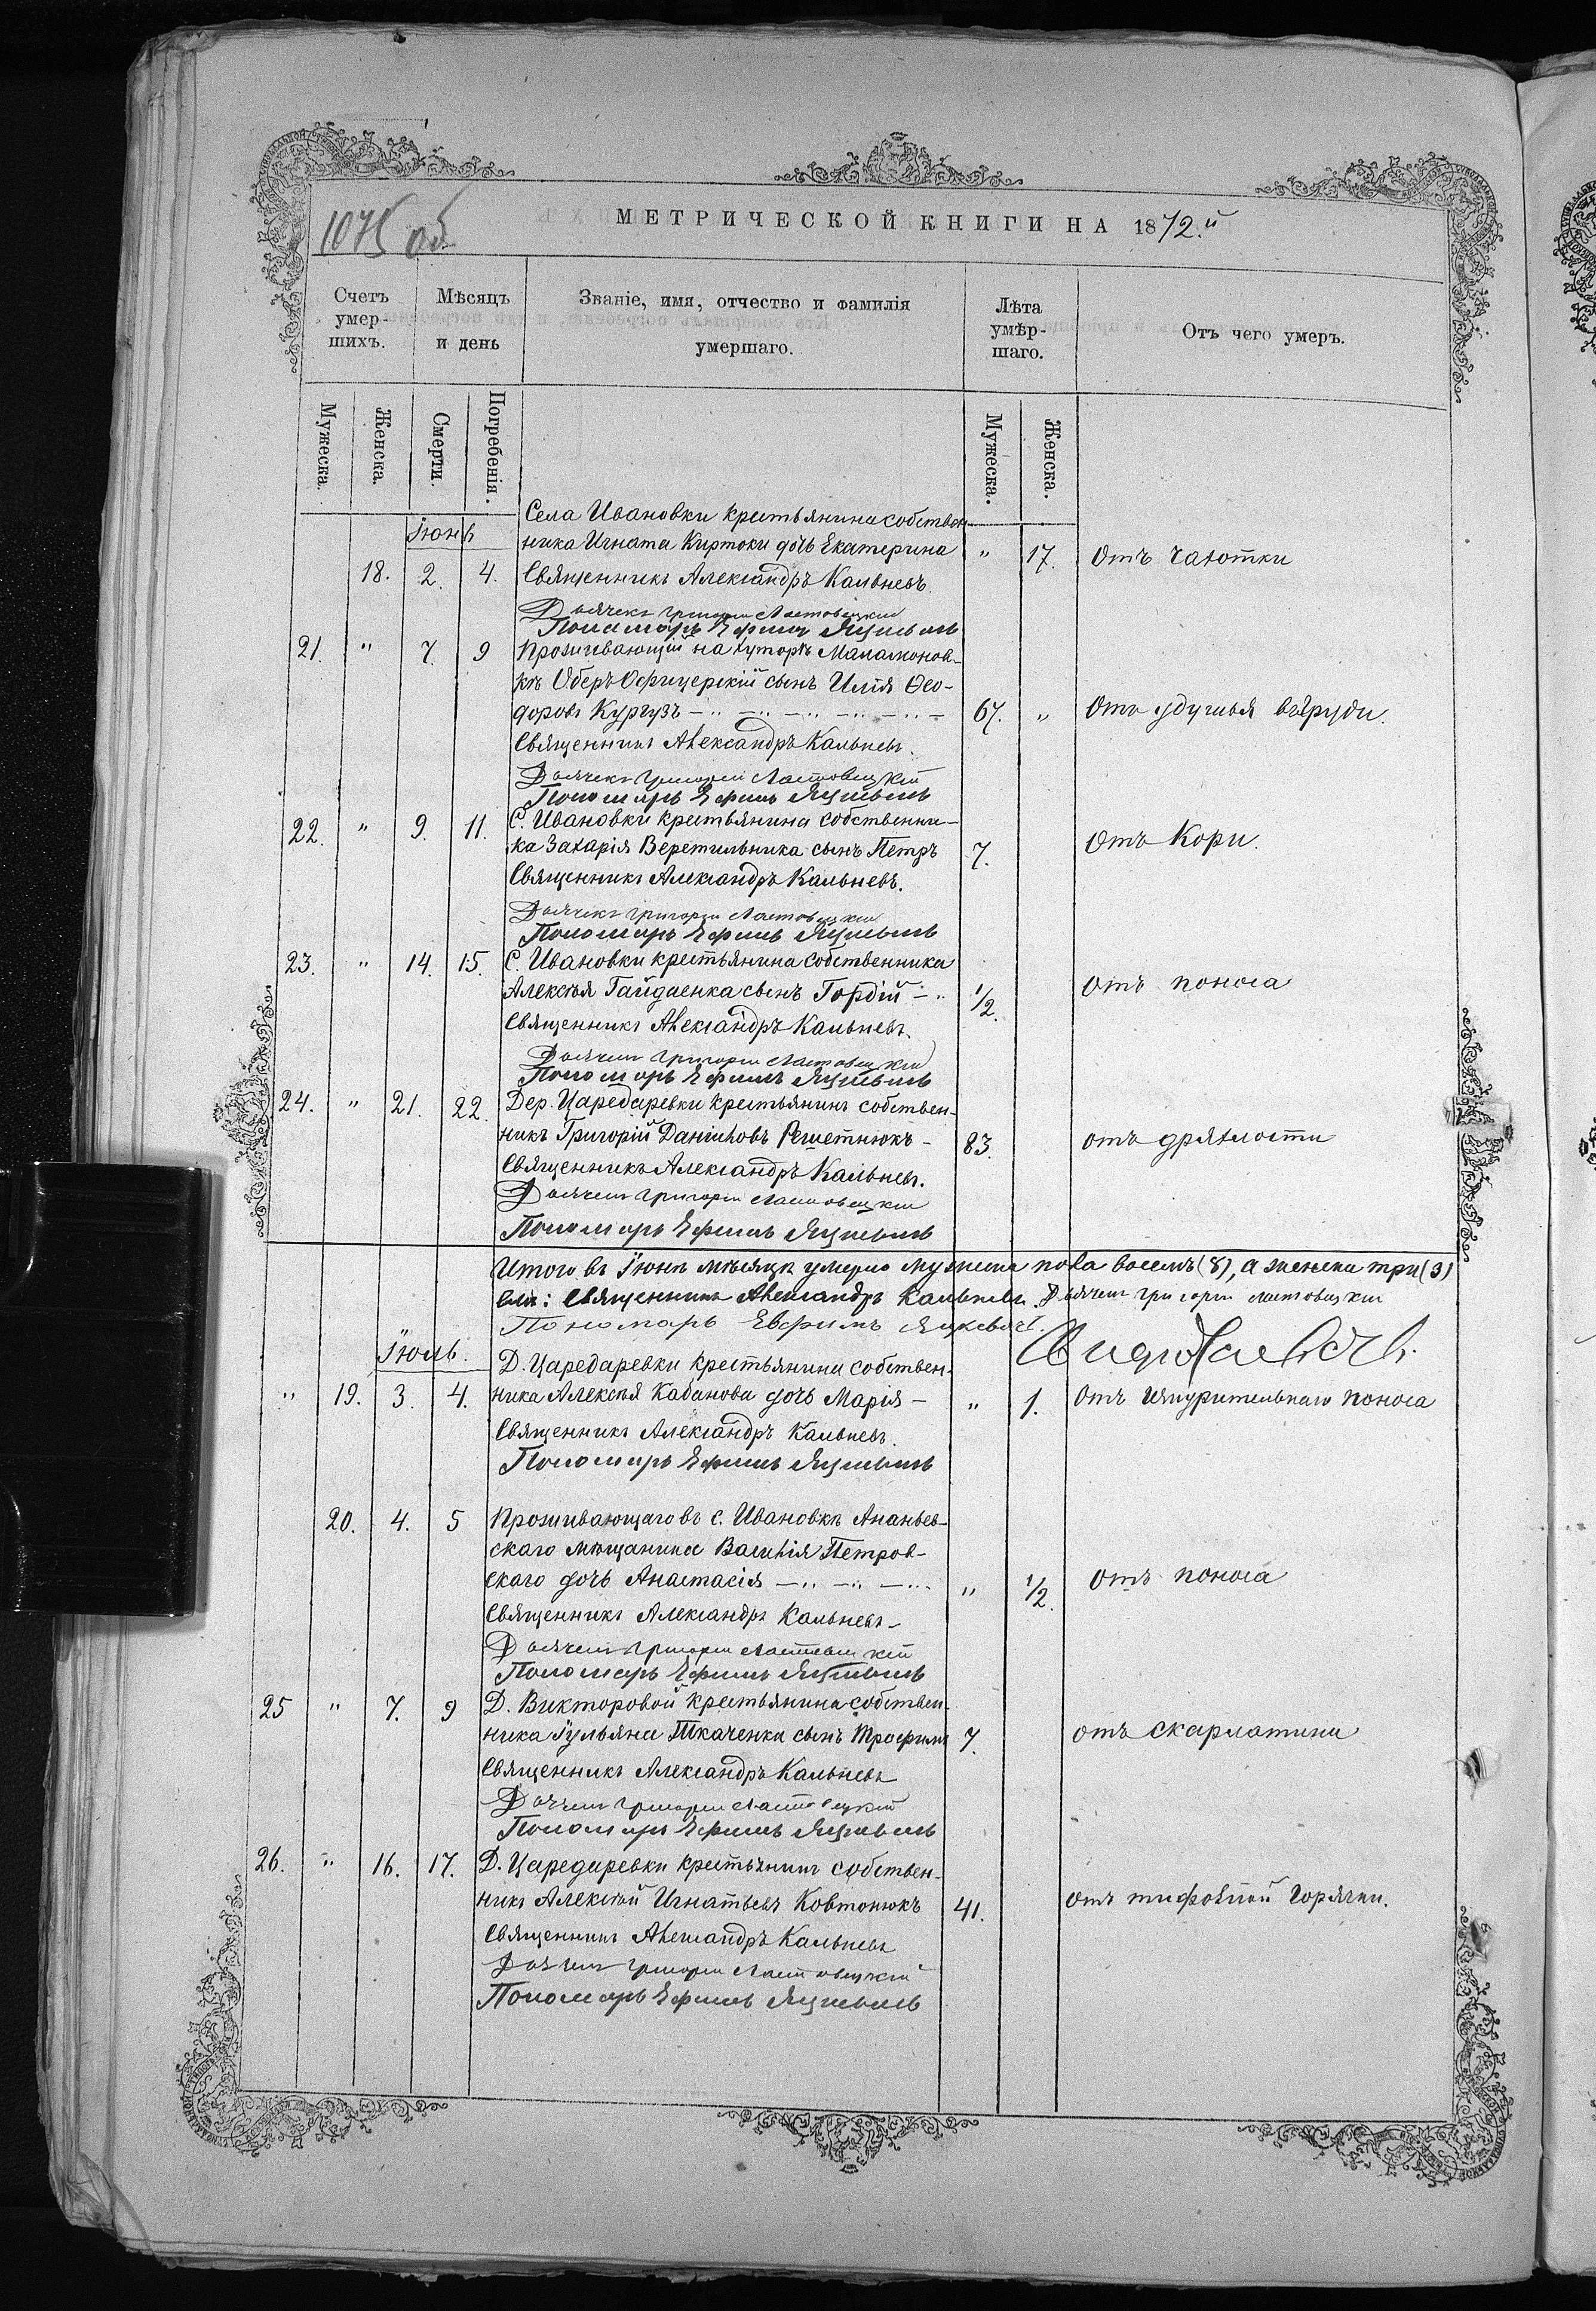 1075 об
МЕТРИЧЕСКОЙ КНИГИ НА 1872.й
Счетъ умер-шихъ.
Мѣсяцъ и день
Званіе, имя, отчество и фамилія умершаго.
Лѣта умѣр-шаго.
Отъ чего умеръ.
Мужеска.
Женска.
Смерти.
Погребенія.
Мужеска.
Женска.
Іюнь
Села Ивановки крестьянина собствен-
ника Игната Киртоки дочь Екатерина " 17. Отъ чахотки
18. 2. 4. Священникъ Александръ Кальневъ.
Дьячекъ Григорій Ластовецкій
Пономарь Ефимъ Яцкевичъ
21. " 7. 9 Проживающій на хуторѣ Маламонов-
кѣ Оберъ Офицерскій сынъ Илія Ѳео-
доровъ Кургузъ 67. " Отъ удушья въ груди.
Священникъ Александръ Кальневъ.
Дьячекъ Григорій Ластовецкій
Пономарь Ефимъ Яцкевичъ
22. " 9. 11. С. Ивановки крестьянина собственни-
ка Захарія Веретильника сынъ Петръ 7. Отъ Кори.
Священникъ Александръ Кальневъ.
Дьячекъ Григорій Ластовецкій
Пономарь Ефимъ Яцкевичъ
23. " 14. 15. С. Ивановки крестьянина собственника
Алексѣя Гайдаенка сынъ Гордій 1/2. Отъ поноса
Священникъ Александръ Кальневъ.
Дьячекъ Григорій Ластовецкій
Пономарь Ефимъ Яцкевичъ
24. " 21. 22. Дер. Царедаревки крестьянинъ собствен-
никъ Григорій Даніиловъ Решетнюкъ - 83. отъ дряхлости
Священникъ Александръ Кальневъ.
Дьячекъ Григорій Ластовецкій
Пономарь Ефимъ Яцкевичъ
Итого въ Іюнѣ мѣсяцѣ умерло мужеска пола восемь (8), а женска три (3)
Священникъ Александръ Кальневъ. Дьячекъ Григорій Ластовецкій
Пономарь Евфимъ Яцкевичъ.
Іюль.
Д. Царедаревки крестьянина собствен-
" 19. 3. 4. ника Алексѣя Кабанова дочь Марія - " 1. Отъ изнурительнаго поноса
Священникъ Александръ Кальневъ.
Пономарь Ефимъ Яцкевичъ
20. 4. 5 Проживающаго въ с. Ивановкѣ Ананьев-
скаго мѣщанина Василія Петров-
скаго дочь Анастасія " 1/2. Отъ поноса
Священникъ Александръ Кальневъ
Дьячекъ Григорій Ластовецкій
Пономарь Ефимъ Яцкевичъ
25 " 7. 9 Д. Викторовой крестьянина собствен-
ника Іульяна Ткаченка сынъ Трофимъ 7. отъ скарлатины
Священникъ Александръ Кальневъ
Дьячекъ Григорій Ластовецкій
Пономарь Ефимъ Яцкевичъ
26. " 16. 17. Д. Царедаревки крестьянинъ собствен-
никъ Алексѣй Игнатьевъ Ковтонюкъ 41. отъ тифозной горячки.
Священникъ Александръ Кальневъ
Дьячекъ Григорій Ластовецкій
Пономарь Ефимъ Яцкевичъ